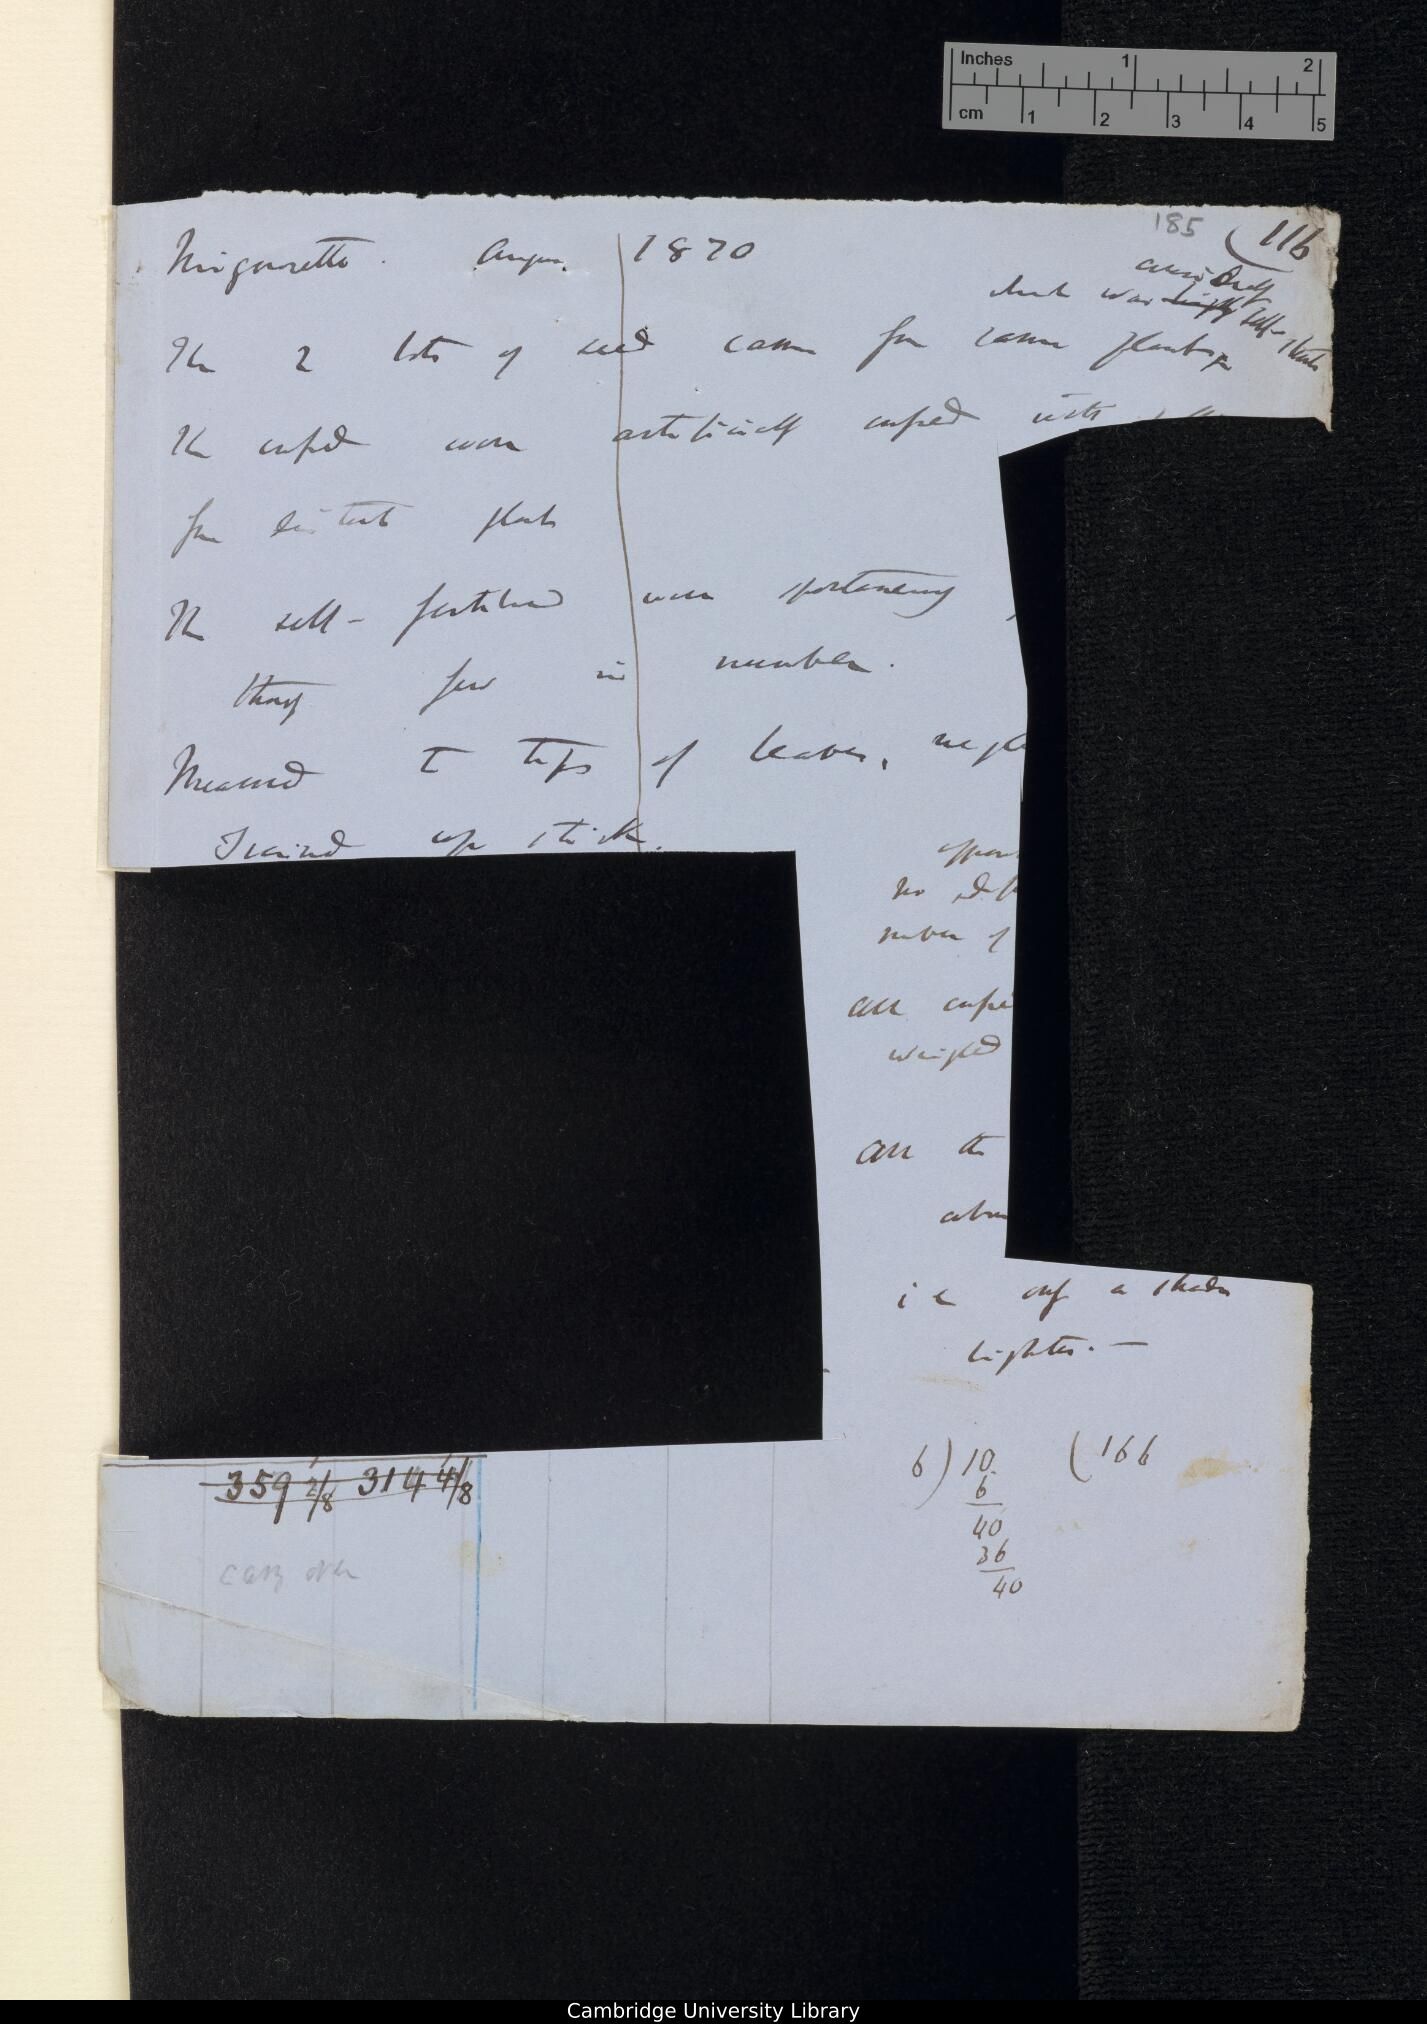 Inches 1 2
cm 1 2 3 4 5
185 (116
Mignonette. August 1870
which was self-sterile
The 2 lots of seed came from same plant
The crossed were artificially crossed with
from distinct plants
The self-fertilised were spontaneously
though few in number.
Measured to tips of leaves,
Trained up sticks.
no
number of
All crossed
weighed
All the
i e only a shade
lighter. —
359 2/8 314 4/8
carry over
6) 10. (166
6
40
36
40
Cambridge University Library